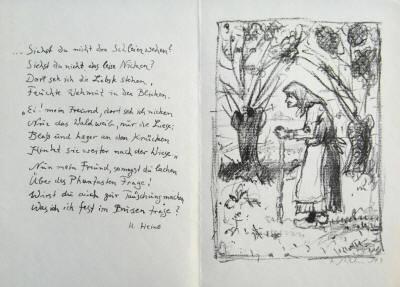 ... Siehst du nicht den Schleier wehen?
Siehst du nicht das leise Nicken?
Dort seh ich die Liebste stehen,
Feuchte Wehmut in den Blicken.
„Ei! mein Freund, dort seh ich nicken
Nur das Waldweib, nur die Liese;
Blaß und hager an den Krücken
Hinkt sie weiter nach der Wiese.“
Nun mein Freund, so magst du lachen
Über des Phantasten Frage!
Wirst du auch zur Täuschung machen,
Was ich fest im Busen trage?
H. Heine